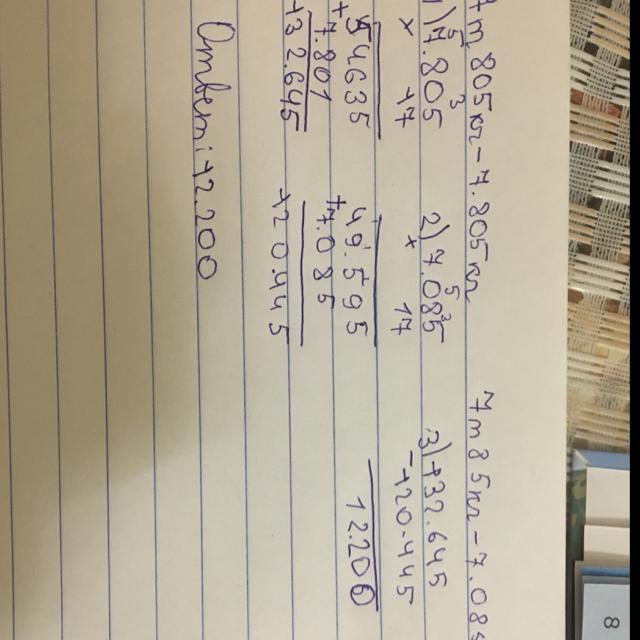 7т 805кг - 7.805кг 7т 85кг - 7.085
1) 7.805 2) 7.085 3) 132.645
× 17 × 17 - 120.445
+ 54635 + 49.595 12.200
7.801 7.085
132.645 120.445
Ответ: 12.200
8